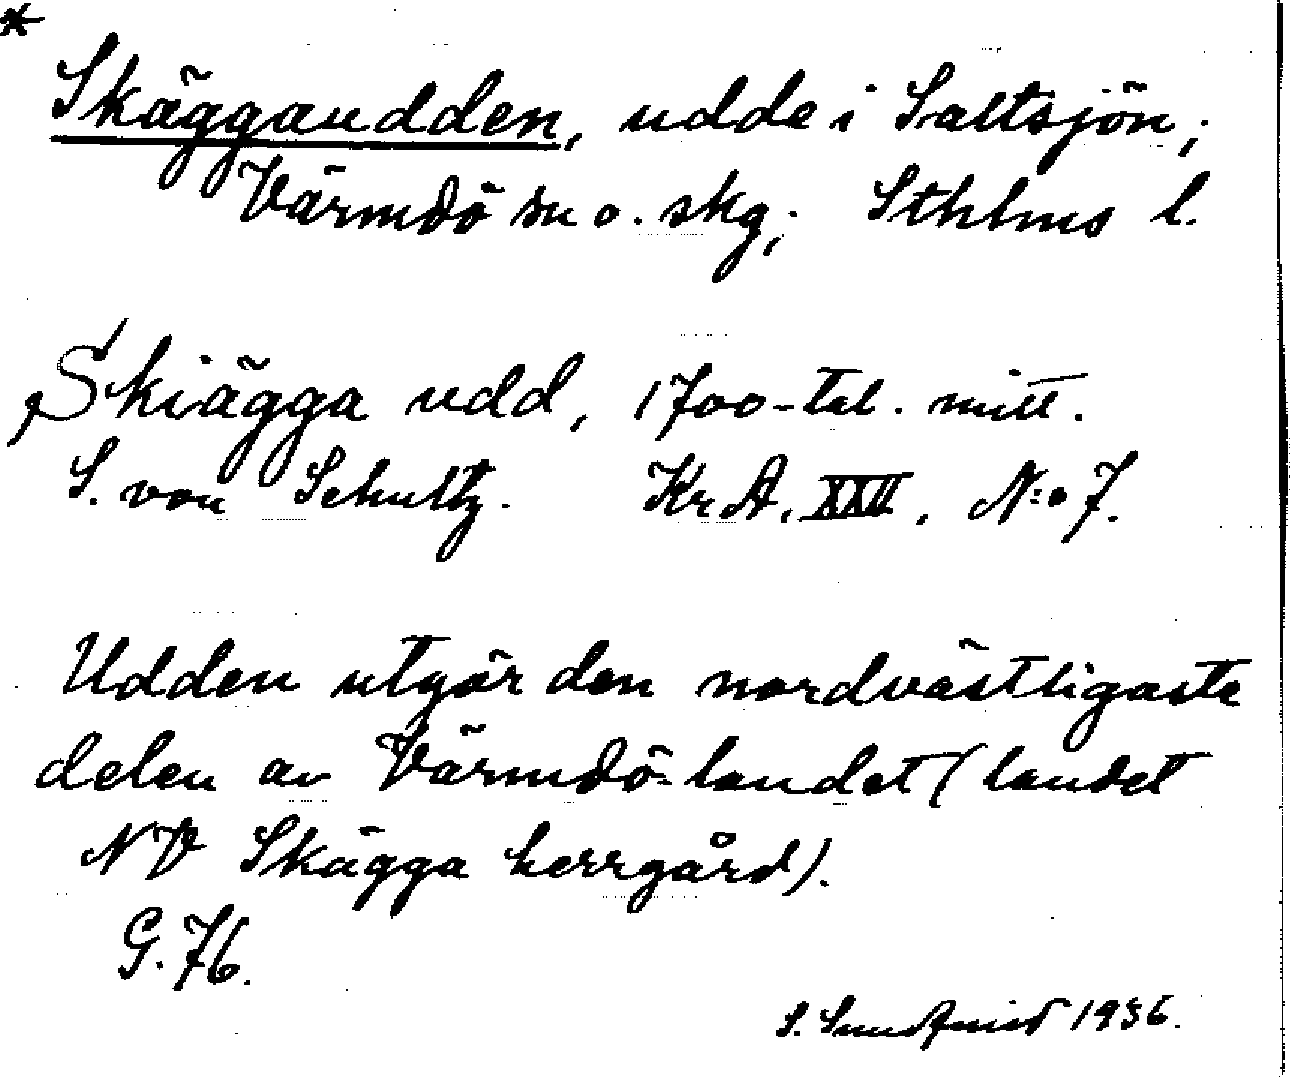 *
Skäggaudden, udde i Saltsjön;
Värmdö sn o. skg; Sthlms l.
Skiägga udd, 1700-tal. mitt.
S. von Schultz. Kr A. XXII. N:o 7.
Udden utgör den nordvästligaste
delen av Värmdö-landet (landet
NV Skägga herrgård).
G. 76.
S. 1936.